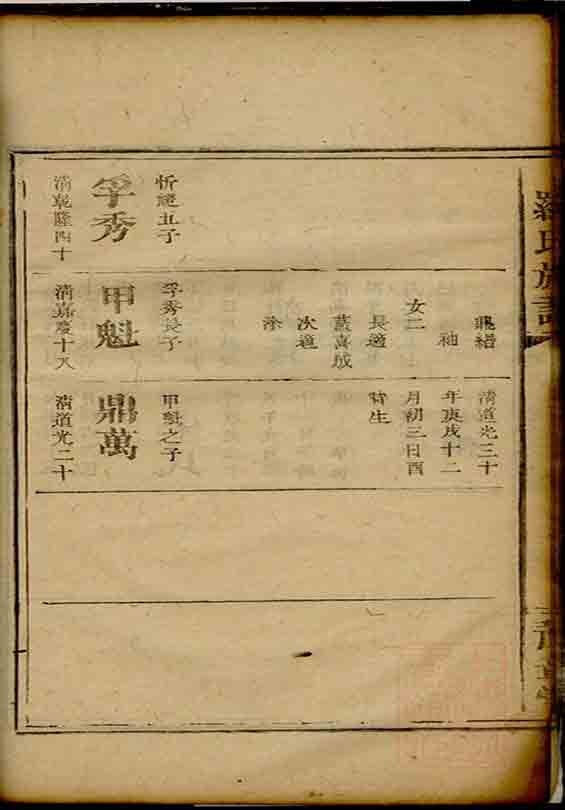 羅氏族譜
清道光三十
年庚戌十二
月初三日酉
時生
女二
長適
藍嵩成
次適
涂
忻
五子
孚秀
清乾隆四十
孚秀長子
甲魁
清嘉慶十八
甲魁之子
鼎萬
清道光二十